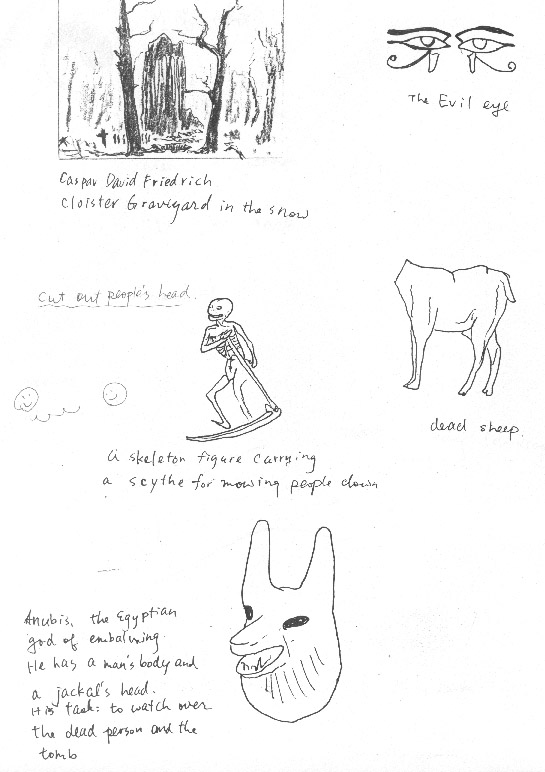 The Evil eye
Caspar David Friedrich
Cloister Graveyard in the snow
Cut out people's head.
dead sheep.
a skeleton figure carrying
a scythe for mowing people down
Anubis, the Egyptian
god of embalming.
He has a man's body and
a jackal's head.
His task: to watch over
the dead person and the
tomb